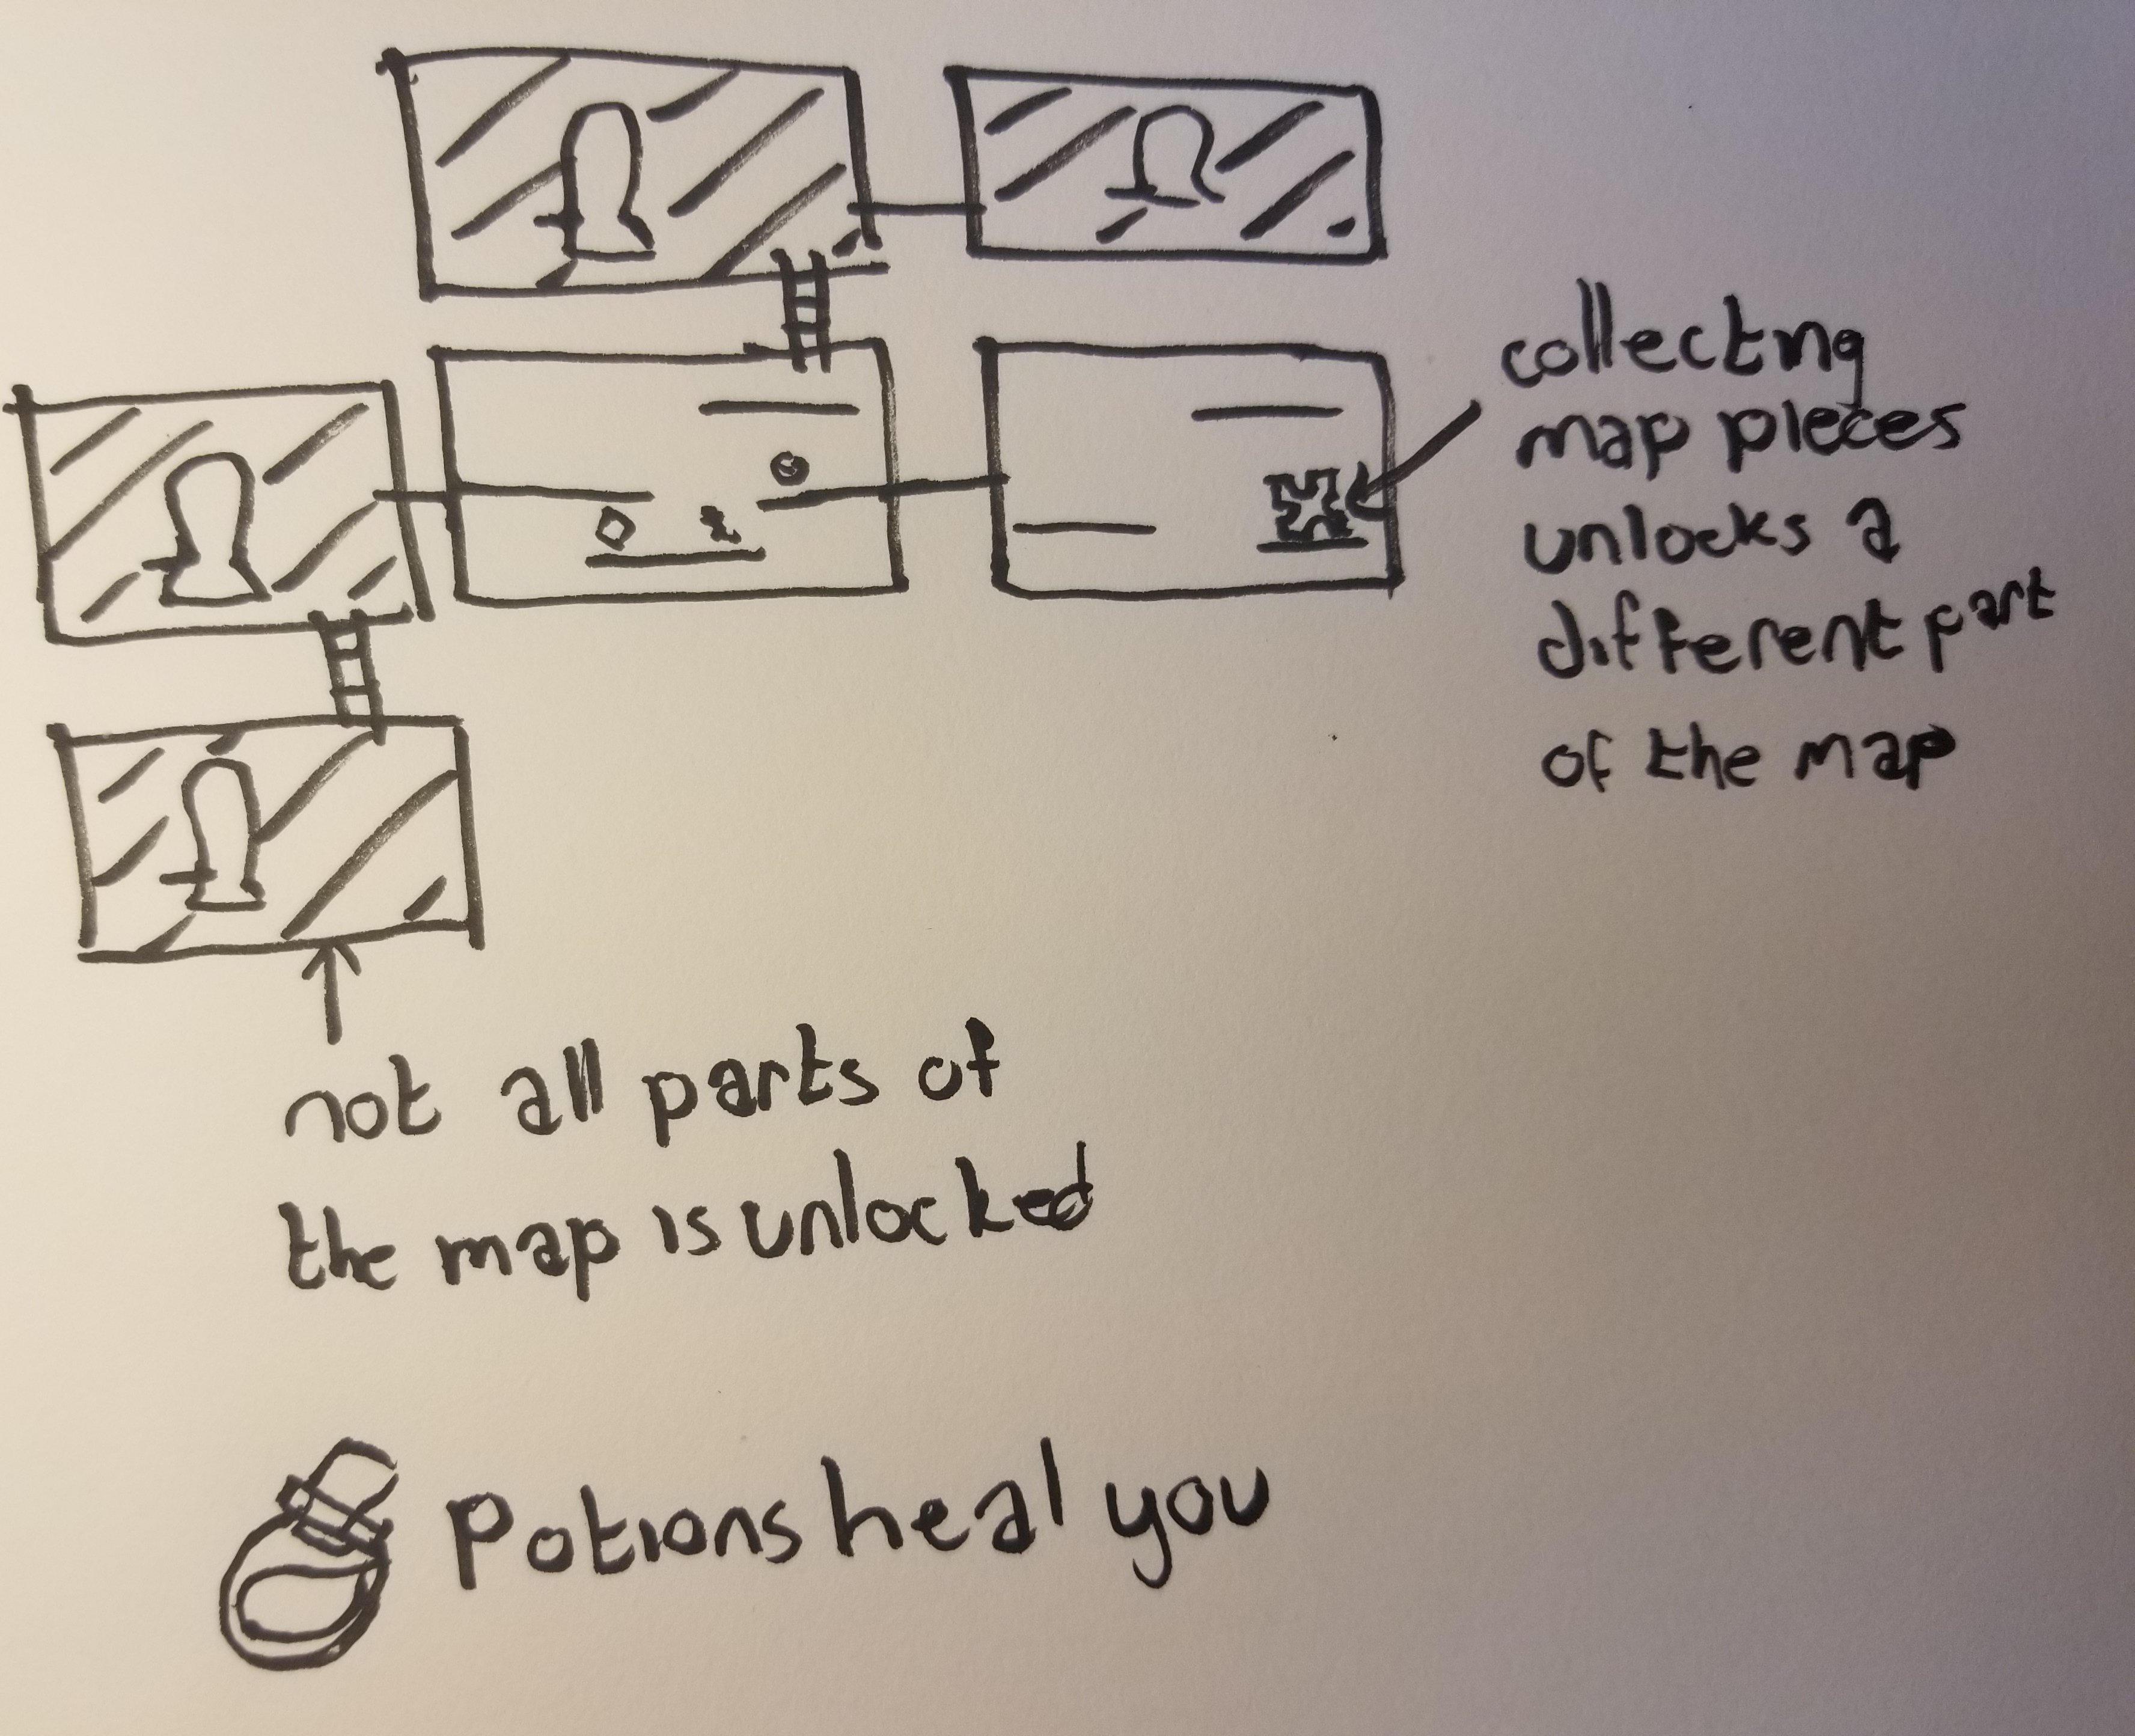 collecting
map pieces
unlocks a
different part
of the map
not all parts of
the map is unlocked
Potions heal you